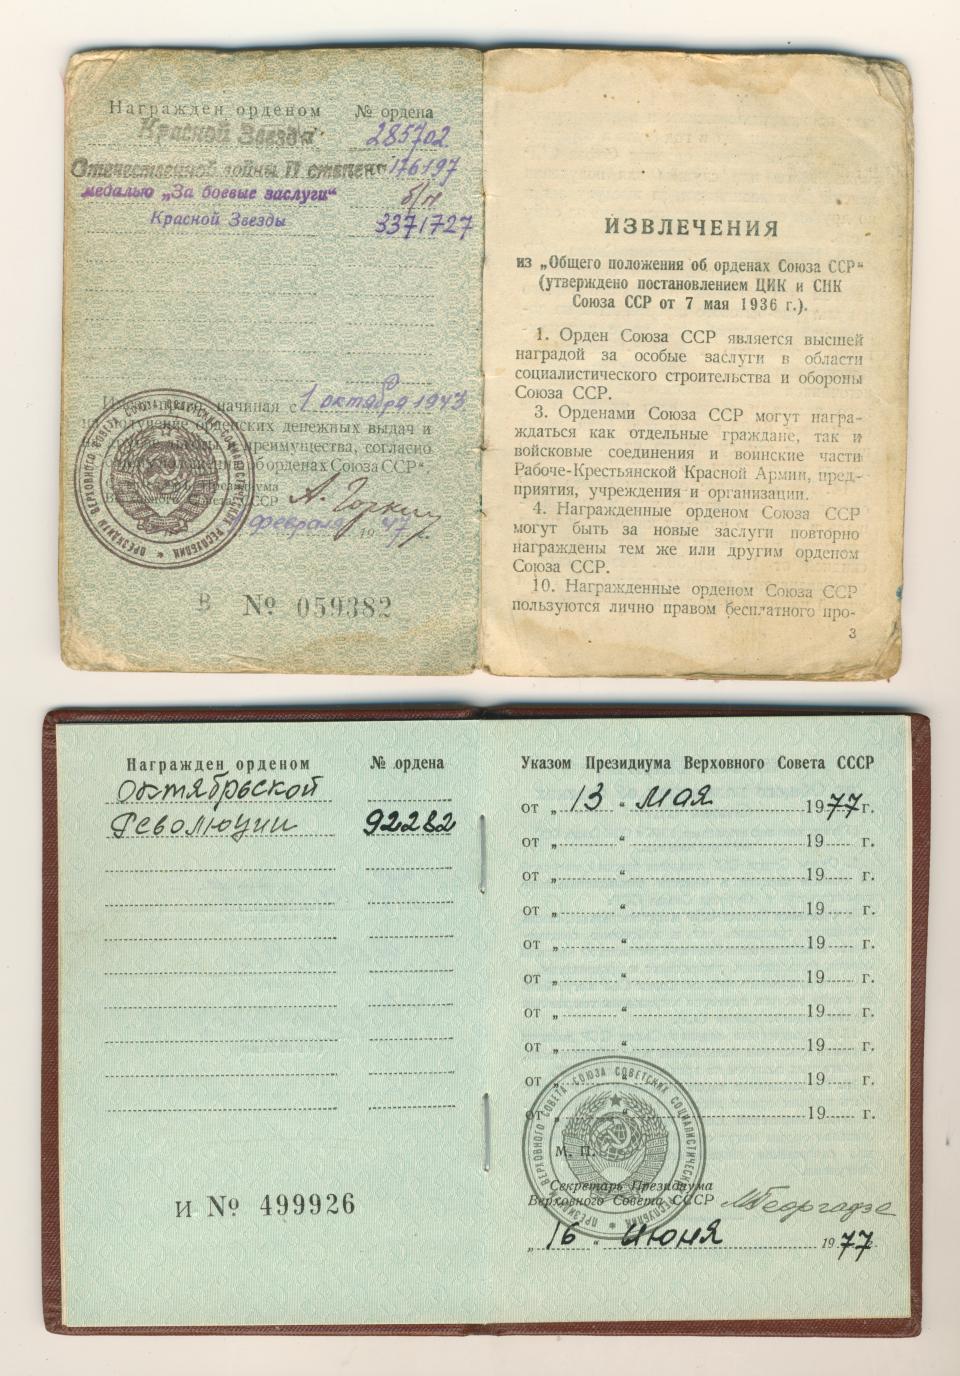 Награжден орденом № ордена
Красной Звезды 285702
Отечественной войны II степени 176197
медалью „За боевые заслуги“ б/н
Красной Звезды 3371727
начиная с 1 октября 1943
на получение орденских денежных выдач и
преимущества, согласно
об орденах Союза ССР“.
Президиума
Верховного Совета СССР А. Горкин
февраля 1947 г.
В № 059382
ИЗВЛЕЧЕНИЯ
из „Общего положения об орденах Союза ССР“
(утверждено постановлением ЦИК и СНК
Союза ССР от 7 мая 1936 г.).
1. Орден Союза ССР является высшей
наградой за особые заслуги в области
социалистического строительства и обороны
Союза ССР.
3. Орденами Союза ССР могут награ-
ждаться как отдельные граждане, так и
войсковые соединения и воинские части
Рабоче-Крестьянской Красной Армии, пред-
приятия, учреждения и организации.
4. Награжденные орденом Союза ССР
могут быть за новые заслуги повторно
награждены тем же или другим орденом
Союза ССР.
10. Награжденные орденом Союза ССР
пользуются лично правом бесплатного про-
3
Награжден орденом № ордена
Октябрьской
Революции 92282
И № 499926
Указом Президиума Верховного Совета СССР
от „ 13 “ мая 1977 г.
от „ “ 19 г.
от „ “ 19 г.
от „ “ 19 г.
от „ “ 19 г.
от „ “ 19 г.
от „ “ 19 г.
от „ “ 19 г.
от „ “ 19 г.
от „ “ 19 г.
ПРЕЗИДИУМ ВЕРХОВНОГО СОВЕТА СОЮЗА СОВЕТСКИХ СОЦИАЛИСТИЧЕСКИХ РЕСПУБЛИК
М. П.
Секретарь Президиума
Верховного Совета СССР М Георгадзе
„ 16 “ июня 1977 г.